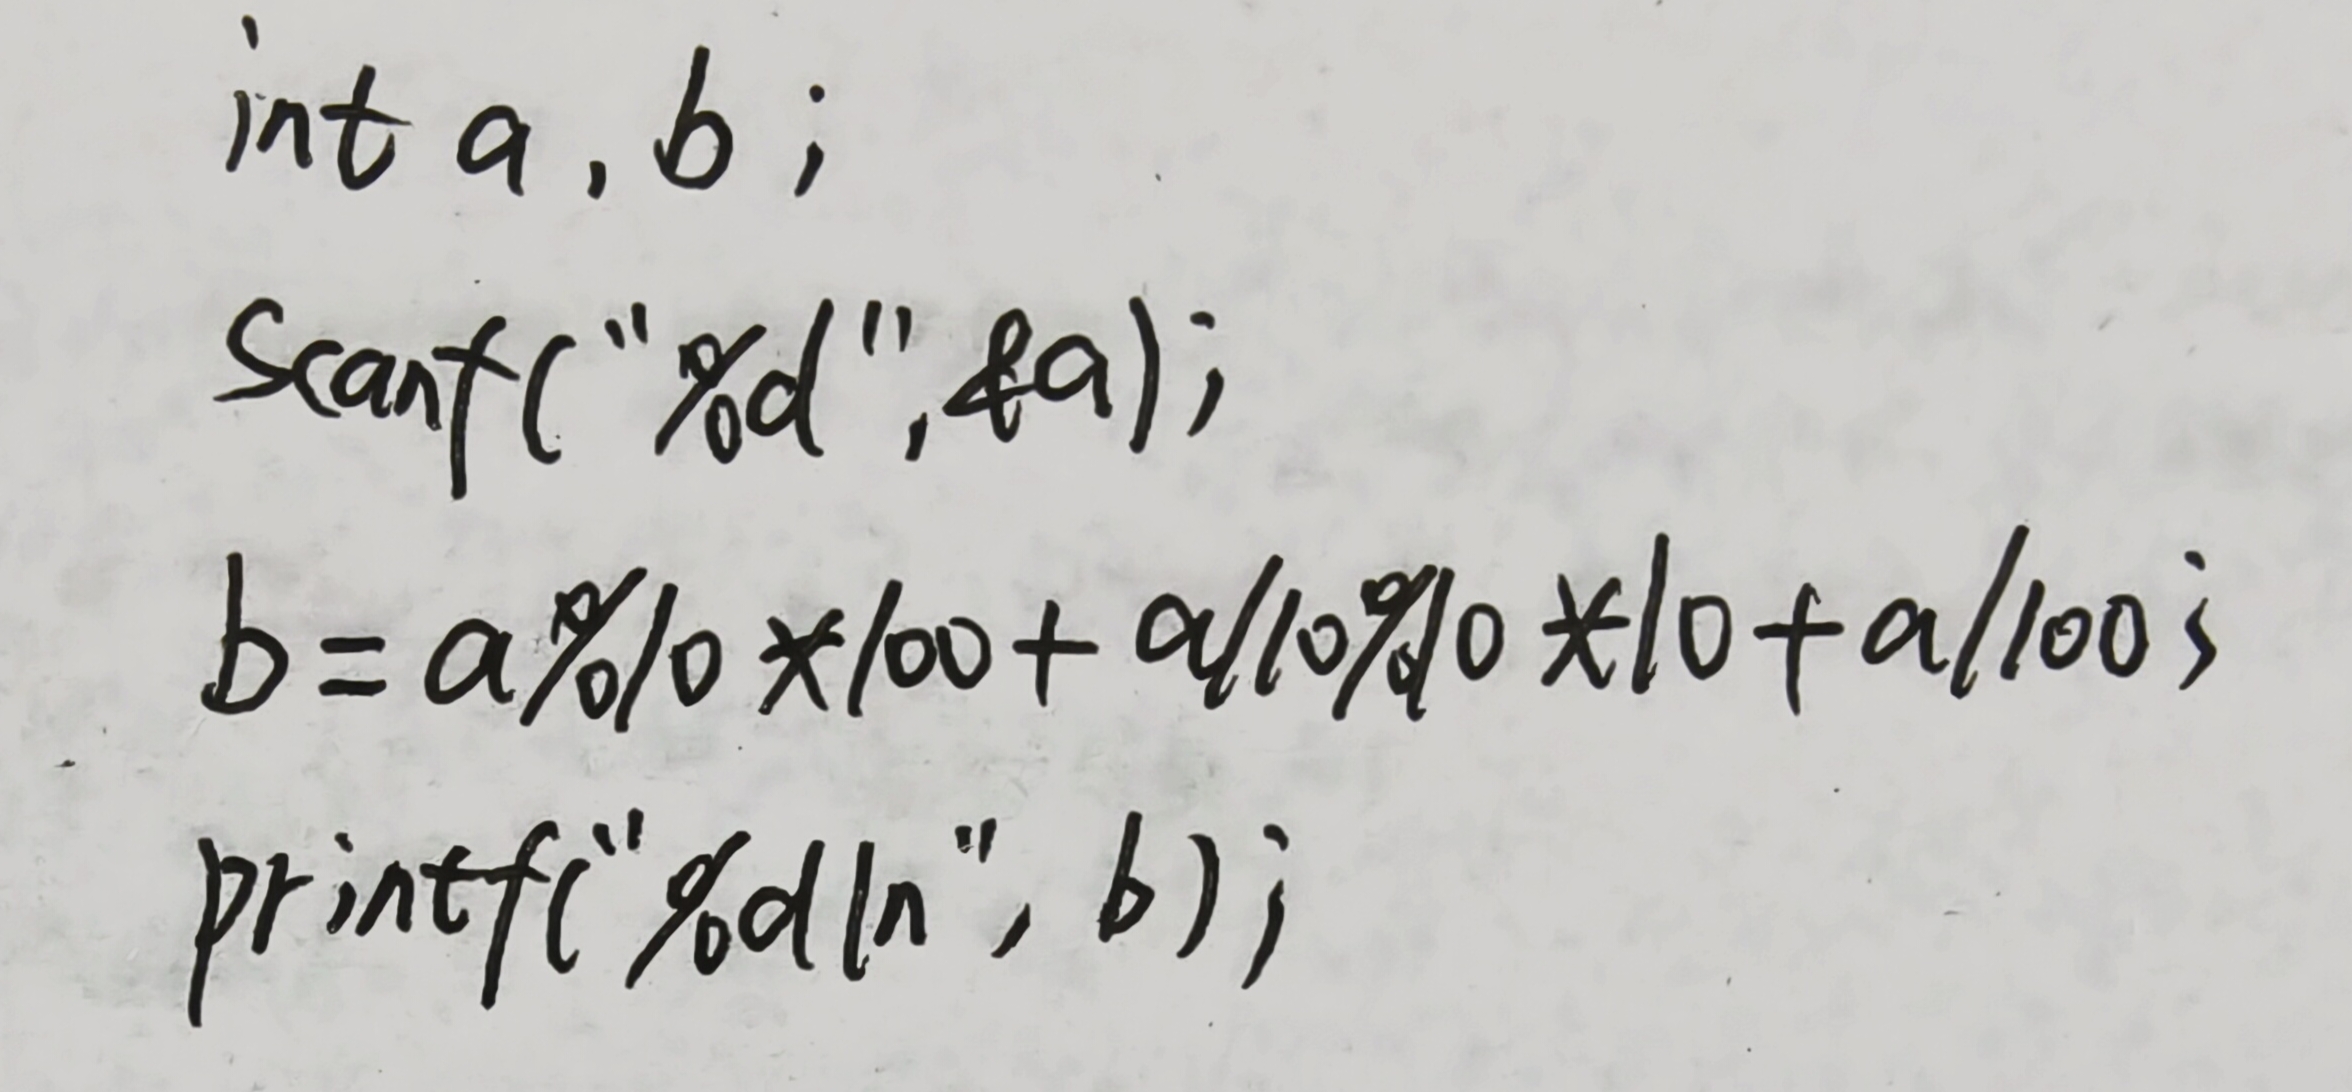 int a, b;
scanf("%d", &a);
b=a%10*100+a/10%10*10+a/100;
printf("%d\n", b);